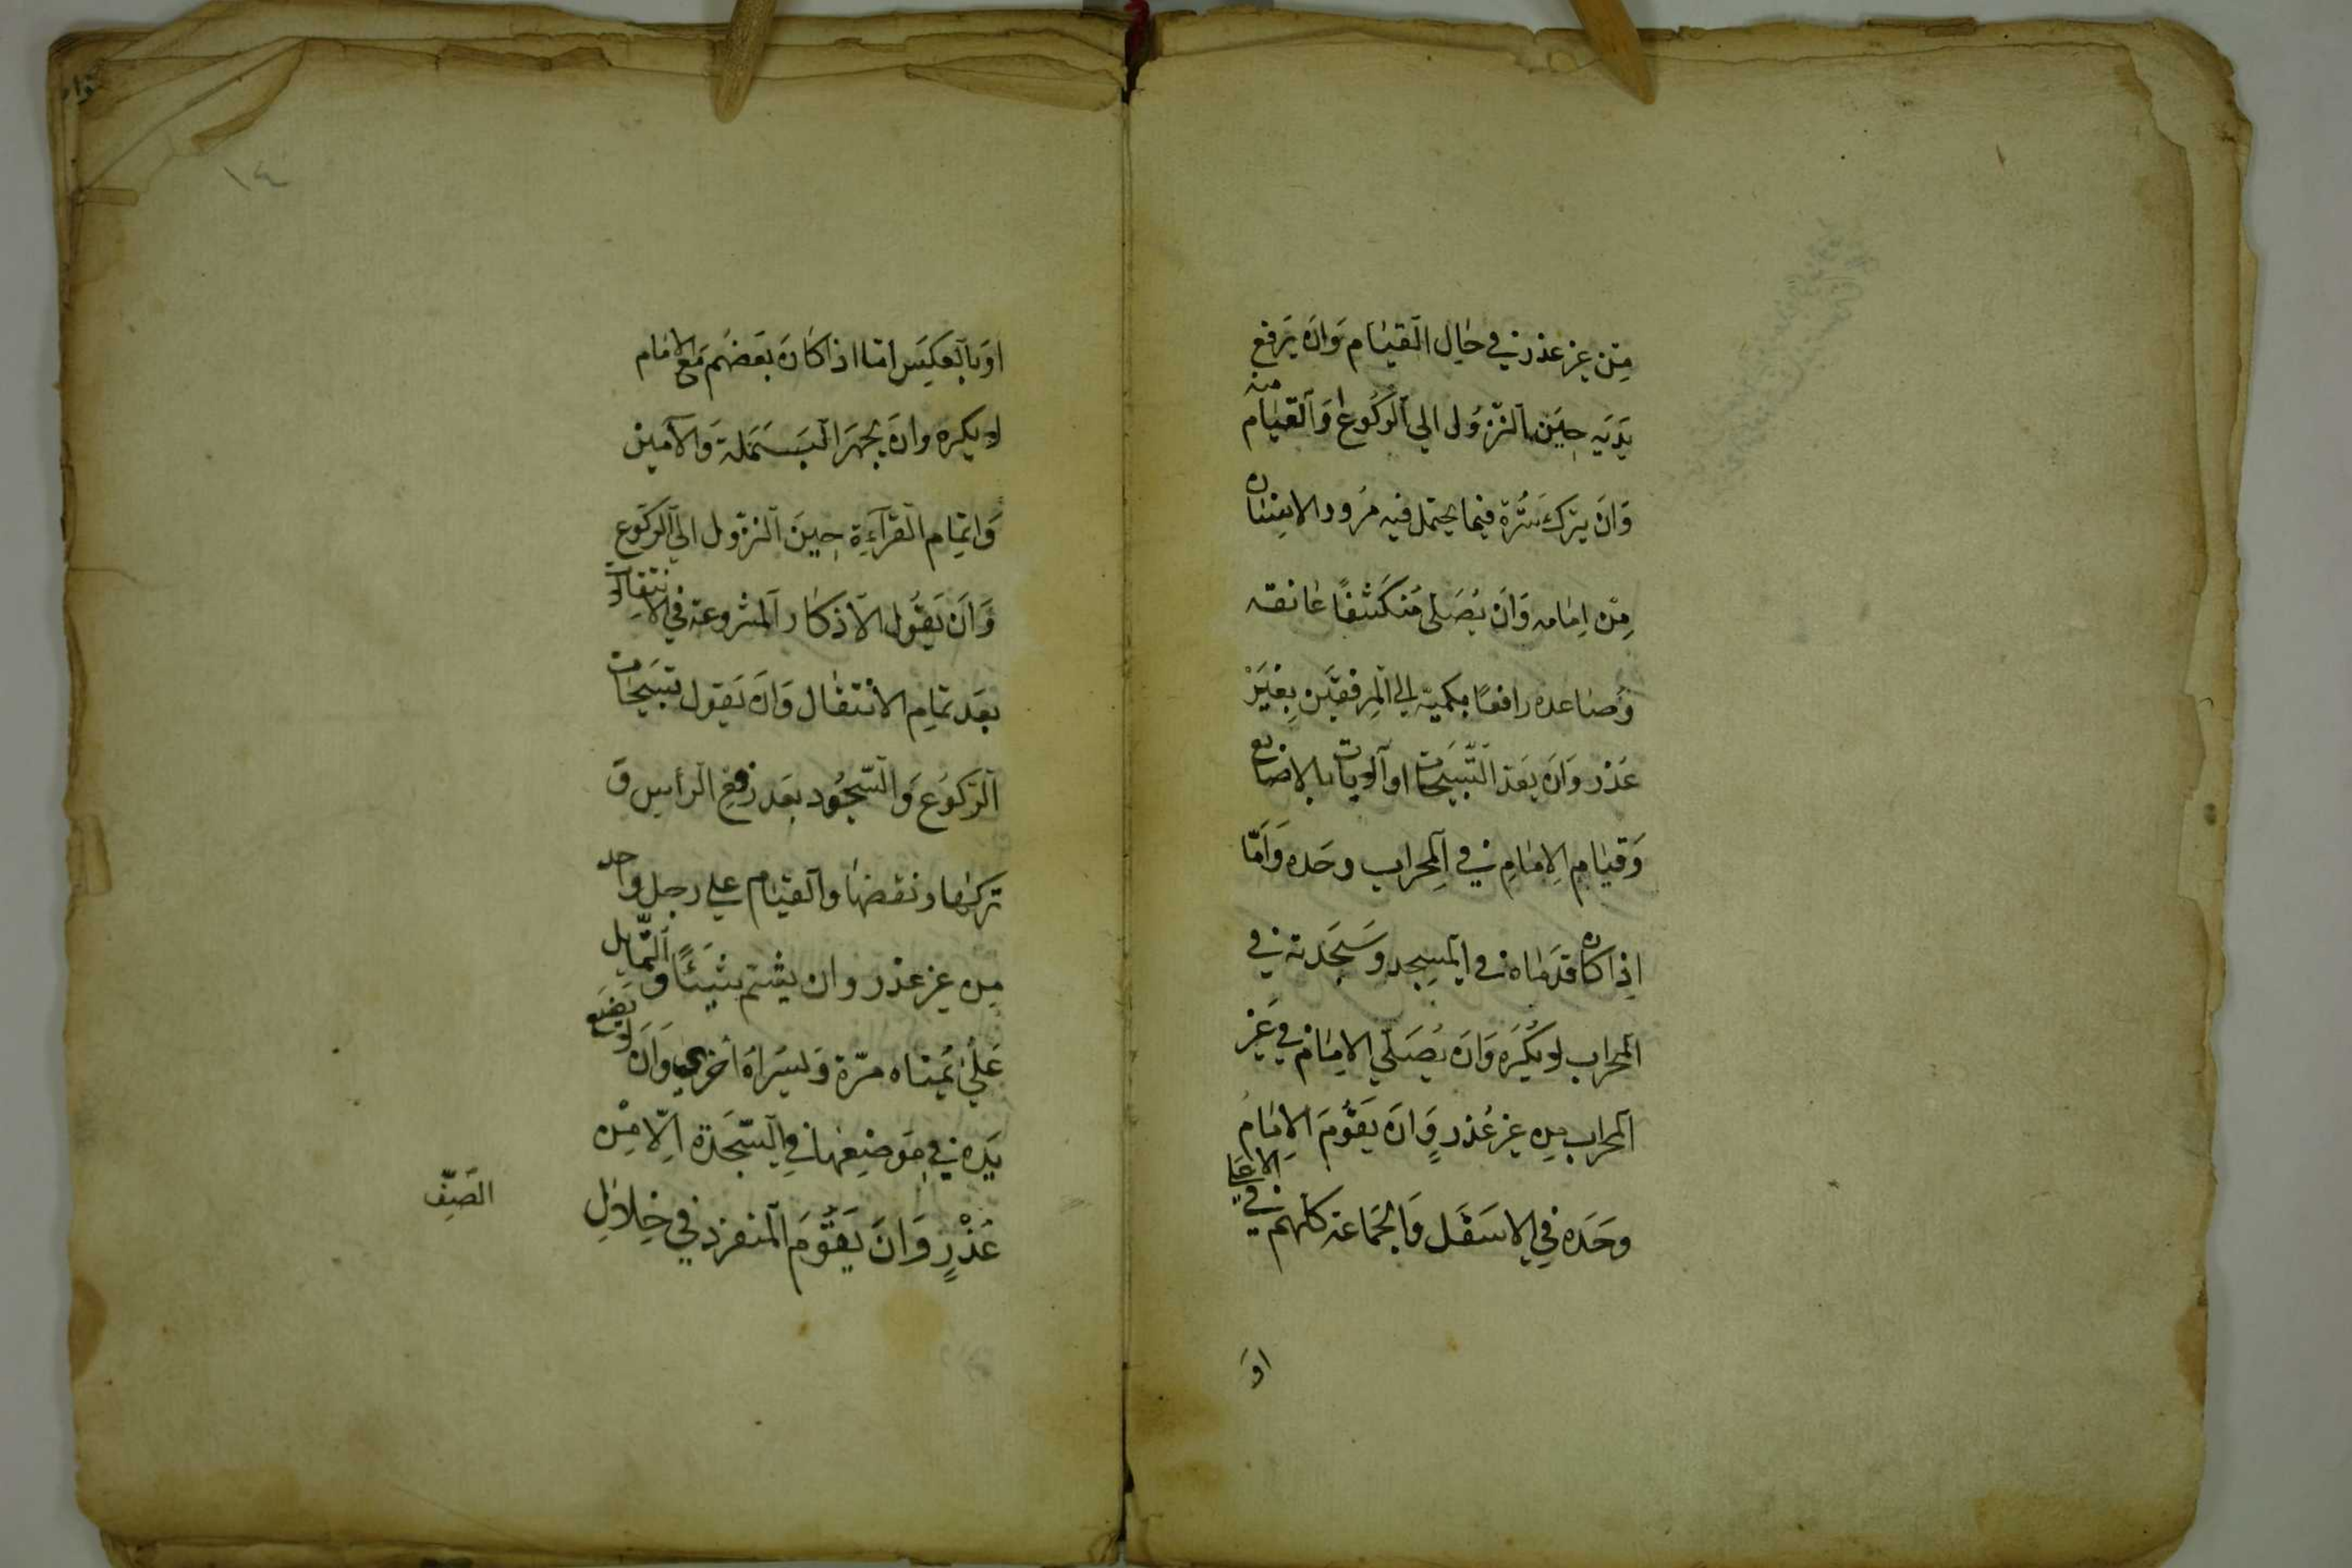 مِنْ غير عذر في حَالِ الْقيَام وَانَ يَرفع
يَدَيه حِينَ النّزُول الي الرُّكُوع وَالْقيَام منه
وَانَ يترك سُتْرة فيما يحتمل فيه مرُور الانسان
مِنْ اِمَامه وَانَ يُصَلى مُنكشفًا عَاتقه
وَصَاعده رافعًا بكميّه الي المِرفقيَن بِغَيْر
عَذر وَانَ يعَدّ التّسبيحَات او الايات بالاصابع
وَقيَامِ الاِمَامِ في المِحرابِ وحَده وَاَمّا
اِذا كان قدَمَاه في المسِجد وسَجَدته في
المحراب لا يُكْرَه وَانَ يُصَلّي الامَام في غَير
المحرابِ مِن غير عُذرٍ وَانَ يَقوُمَ الاِمَامُ
وحَدَه فِي الاسفَل وَالجمَاعة كلهم في الاعلي
اوَ
١٤
اوَبالعكِس امّا اذا كانَ بعَضهُم مَع الامَام
لا يكره وانَ يجهَرَ البَسمَلة وَالآمين
وَاتمامِ القرآءَةِ حِينَ النزّول الي الركوع
وَانَ يَقوُل الاذكار المشروعة في الانتقالات
بعَد تمامِ الانتقال وَانَ يَقول تسبيحَات
الرّكوُع وَالسّجوُد بعَد رفع الرأس وَ
تركها ونقضهَا والقيَام علي رجل واحد
مِن غير عذر وان يشتم شيَئًا وَالتّمايل
عَلي يُمنَاه مرّة وَليسْراهُ اخري وَانَ لا يَضَع
يَدِه في مَوضِعهَا في السّجَدة اِلّا مِنْ
عَذْرٍ وَانَ يَقوُمَ المنفرد في خِلالِ
الصَفّ